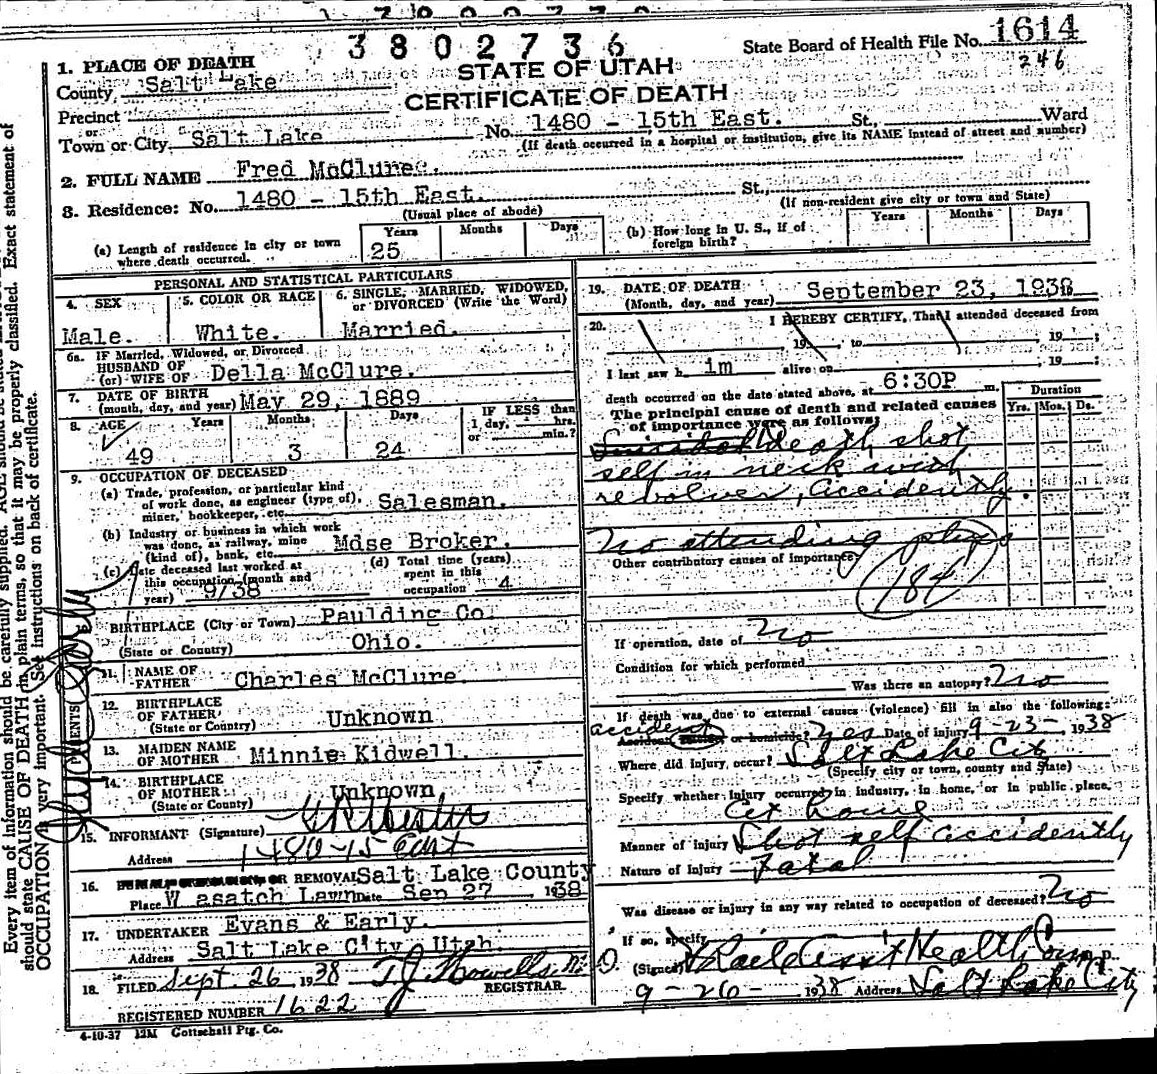 3802736
State Board of Health File No. 1614
246
STATE OF UTAH
CERTIFICATE OF DEATH
1. PLACE OF DEATH
County Salt Lake
Precinct
or
Town or City Salt Lake No. 1480 - 15th East. St., Ward
(If death occurred in a hospital or institution, give its NAME instead of street and number)
2. FULL NAME Fred McClure.
3. Residence: No. 1480 - 15th East. St.,
(Usual place of abode) (If non-resident give city or town and State)
(a) Length of residence in city or town where death occurred. Years 25 Months Days
(b) How long in U. S., if of foreign birth? Years Months Days
PERSONAL AND STATISTICAL PARTICULARS
4. SEX
Male.
5. COLOR OR RACE
White.
6. SINGLE, MARRIED, WIDOWED,
or DIVORCED (Write the Word)
Married.
6a. IF Married, Widowed, or Divorced
HUSBAND OF
(or) WIFE OF Della McClure.
7. DATE OF BIRTH
(month, day, and year) May 29, 1889
8. AGE Years Months Days IF LESS than
1 day, hrs.
or min.?
49 3 24
9. OCCUPATION OF DECEASED
(a) Trade, profession, or particular kind
of work done, as engineer (type of), Salesman.
miner, bookkeeper, etc.
(b) Industry or business in which work
was done, as railway, mine Mdse Broker.
(kind of), bank, etc.
(c) Date deceased last worked at
this occupation (month and
year) 9/38
(d) Total time (years)
spent in this
occupation 4
10. BIRTHPLACE (City or Town) Paulding Co.
(State or Country) Ohio.
PARENTS
11. NAME OF
FATHER Charles McClure.
12. BIRTHPLACE
OF FATHER Unknown
(State or Country)
13. MAIDEN NAME
OF MOTHER Minnie Kidwell.
14. BIRTHPLACE
OF MOTHER Unknown
(State or Country)
15. INFORMANT (Signature)
Address 1480-15 East
16. OR REMOVAL Salt Lake County
Place Wasatch Lawn Date Sep 27 1938
17. UNDERTAKER Evans & Early.
Address Salt Lake City, Utah.
18. FILED Sept. 26 1938 T J Howells M.D.
REGISTRAR
REGISTERED NUMBER 1622
4-10-37 12M Gottschall Ptg. Co.
19. DATE OF DEATH
(Month, day, and year) September 23, 1938
20. I HEREBY CERTIFY, That I attended deceased from
19 , to 19 ;
I last saw h im alive on 19 ;
death occurred on the date stated above, at 6:30P m.
The principal cause of death and related causes
of importance were as follows:
Duration
Yrs. Mos. Ds.
Suicidal Death shot
self in neck with
revolver, accidently.
No attending phys
Other contributory causes of importance
(184)
If operation, date of No
Condition for which performed
Was there an autopsy? No
If death was due to external causes (violence) fill in also the following:
accident
Accident, suicide or homicide? Yes Date of injury 9-23- 1938
Where did injury, occur? Salt Lake City
(Specify city or town, county and State)
Specify whether injury occurred in industry, in home, or in public place,
At home
Manner of injury Shot self accidently
Nature of Injury Fatal
Was disease or injury in any way related to occupation of deceased? No
If so, specify
(Signed) Health Comm
9-26- 1938 Address Salt Lake City
Every item of information should be carefully supplied. AGE should be stated
should state CAUSE OF DEATH in plain terms, so that it may be properly classified. Exact statement of
OCCUPATION is very important. See instructions on back of certificate.